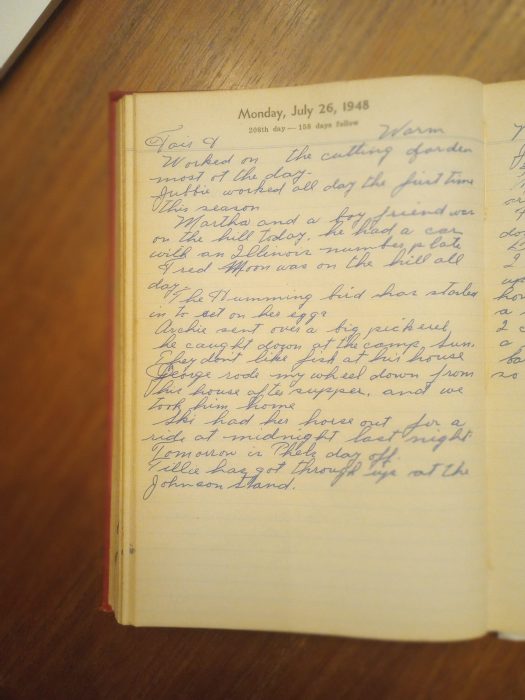 Monday, July 26, 1948
208th day — 158 days follow
Fair & Warm
Worked on the cutting Garden
most of the day.
Jubbie worked all day the first time
this season
Martha and a boy friend was
on the hill today, he had a car
with an Illinois number plate
Fred Moon was on the hill all
day.
The Humming bird has started
in to set on her eggs
Archie sent over a big pickerel
he caught down at the camp Sun.
They dont like fish at his house
George rode my wheel down from
his house after supper, and we
took him home
She had her horse out for a
ride at midnight last night
Tomorrow is Phels day off.
Tillie has got through up at the
Johnson Stand.